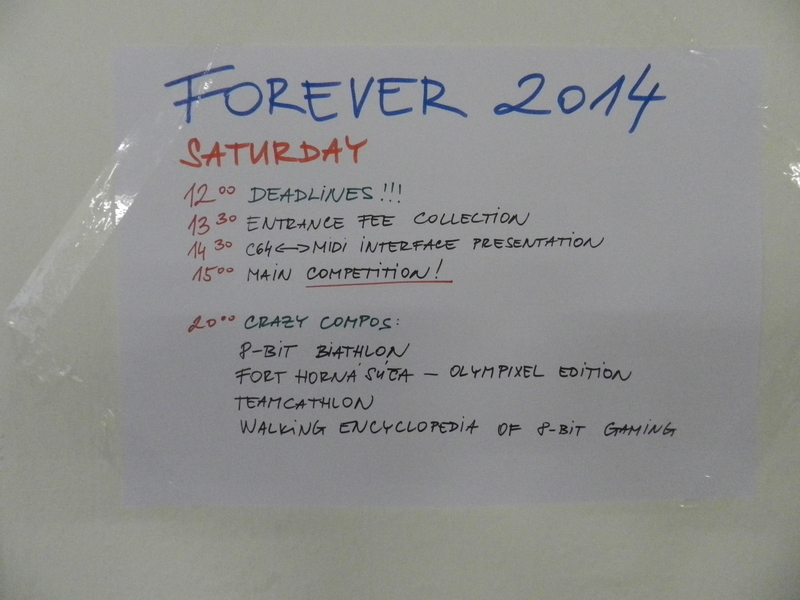 FOREVER 2014
SATURDAY
12⁰⁰ DEADLINES!!!
13³⁰ ENTRANCE FEE COLLECTION
14³⁰ C64<->MIDI INTERFACE PRESENTATION
15⁰⁰ MAIN COMPETITION!
20⁰⁰ CRAZY COMPOS:
8-BIT BIATHLON
FORT HORNÁ SÚČA – OLYMPIXEL EDITION
TEAMCATHLON
WALKING ENCYCLOPEDIA OF 8-BIT GAMING